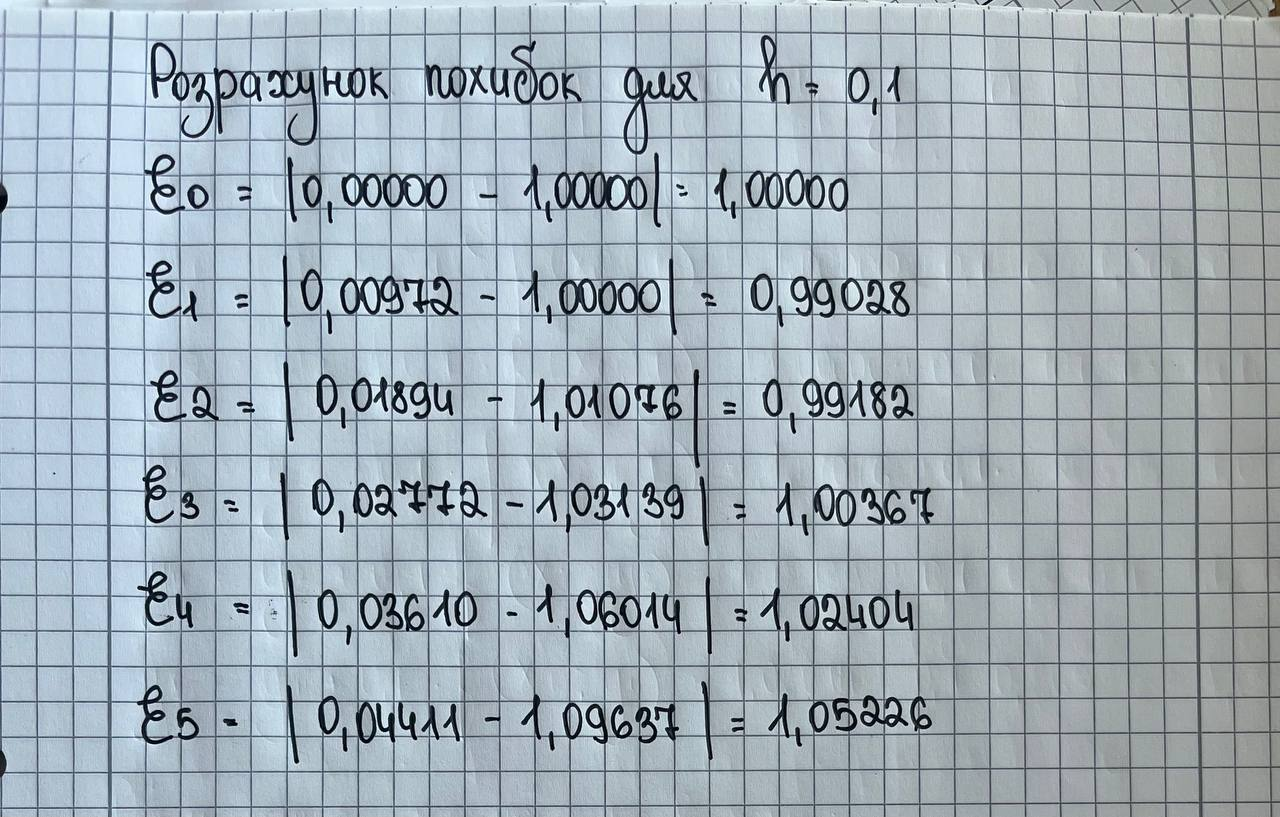 Розрахунок похибок для h = 0,1
Ɛ0 = |0,00000 - 1,00000| = 1,00000
Ɛ1 = |0,00972 - 1,00000| = 0,99028
Ɛ2 = |0,01894 - 1,01076| = 0,99182
Ɛ3 = |0,02772 - 1,03139| = 1,00367
Ɛ4 = |0,03610 - 1,06014| = 1,02404
Ɛ5 - |0,04411 - 1,09637| = 1,05226